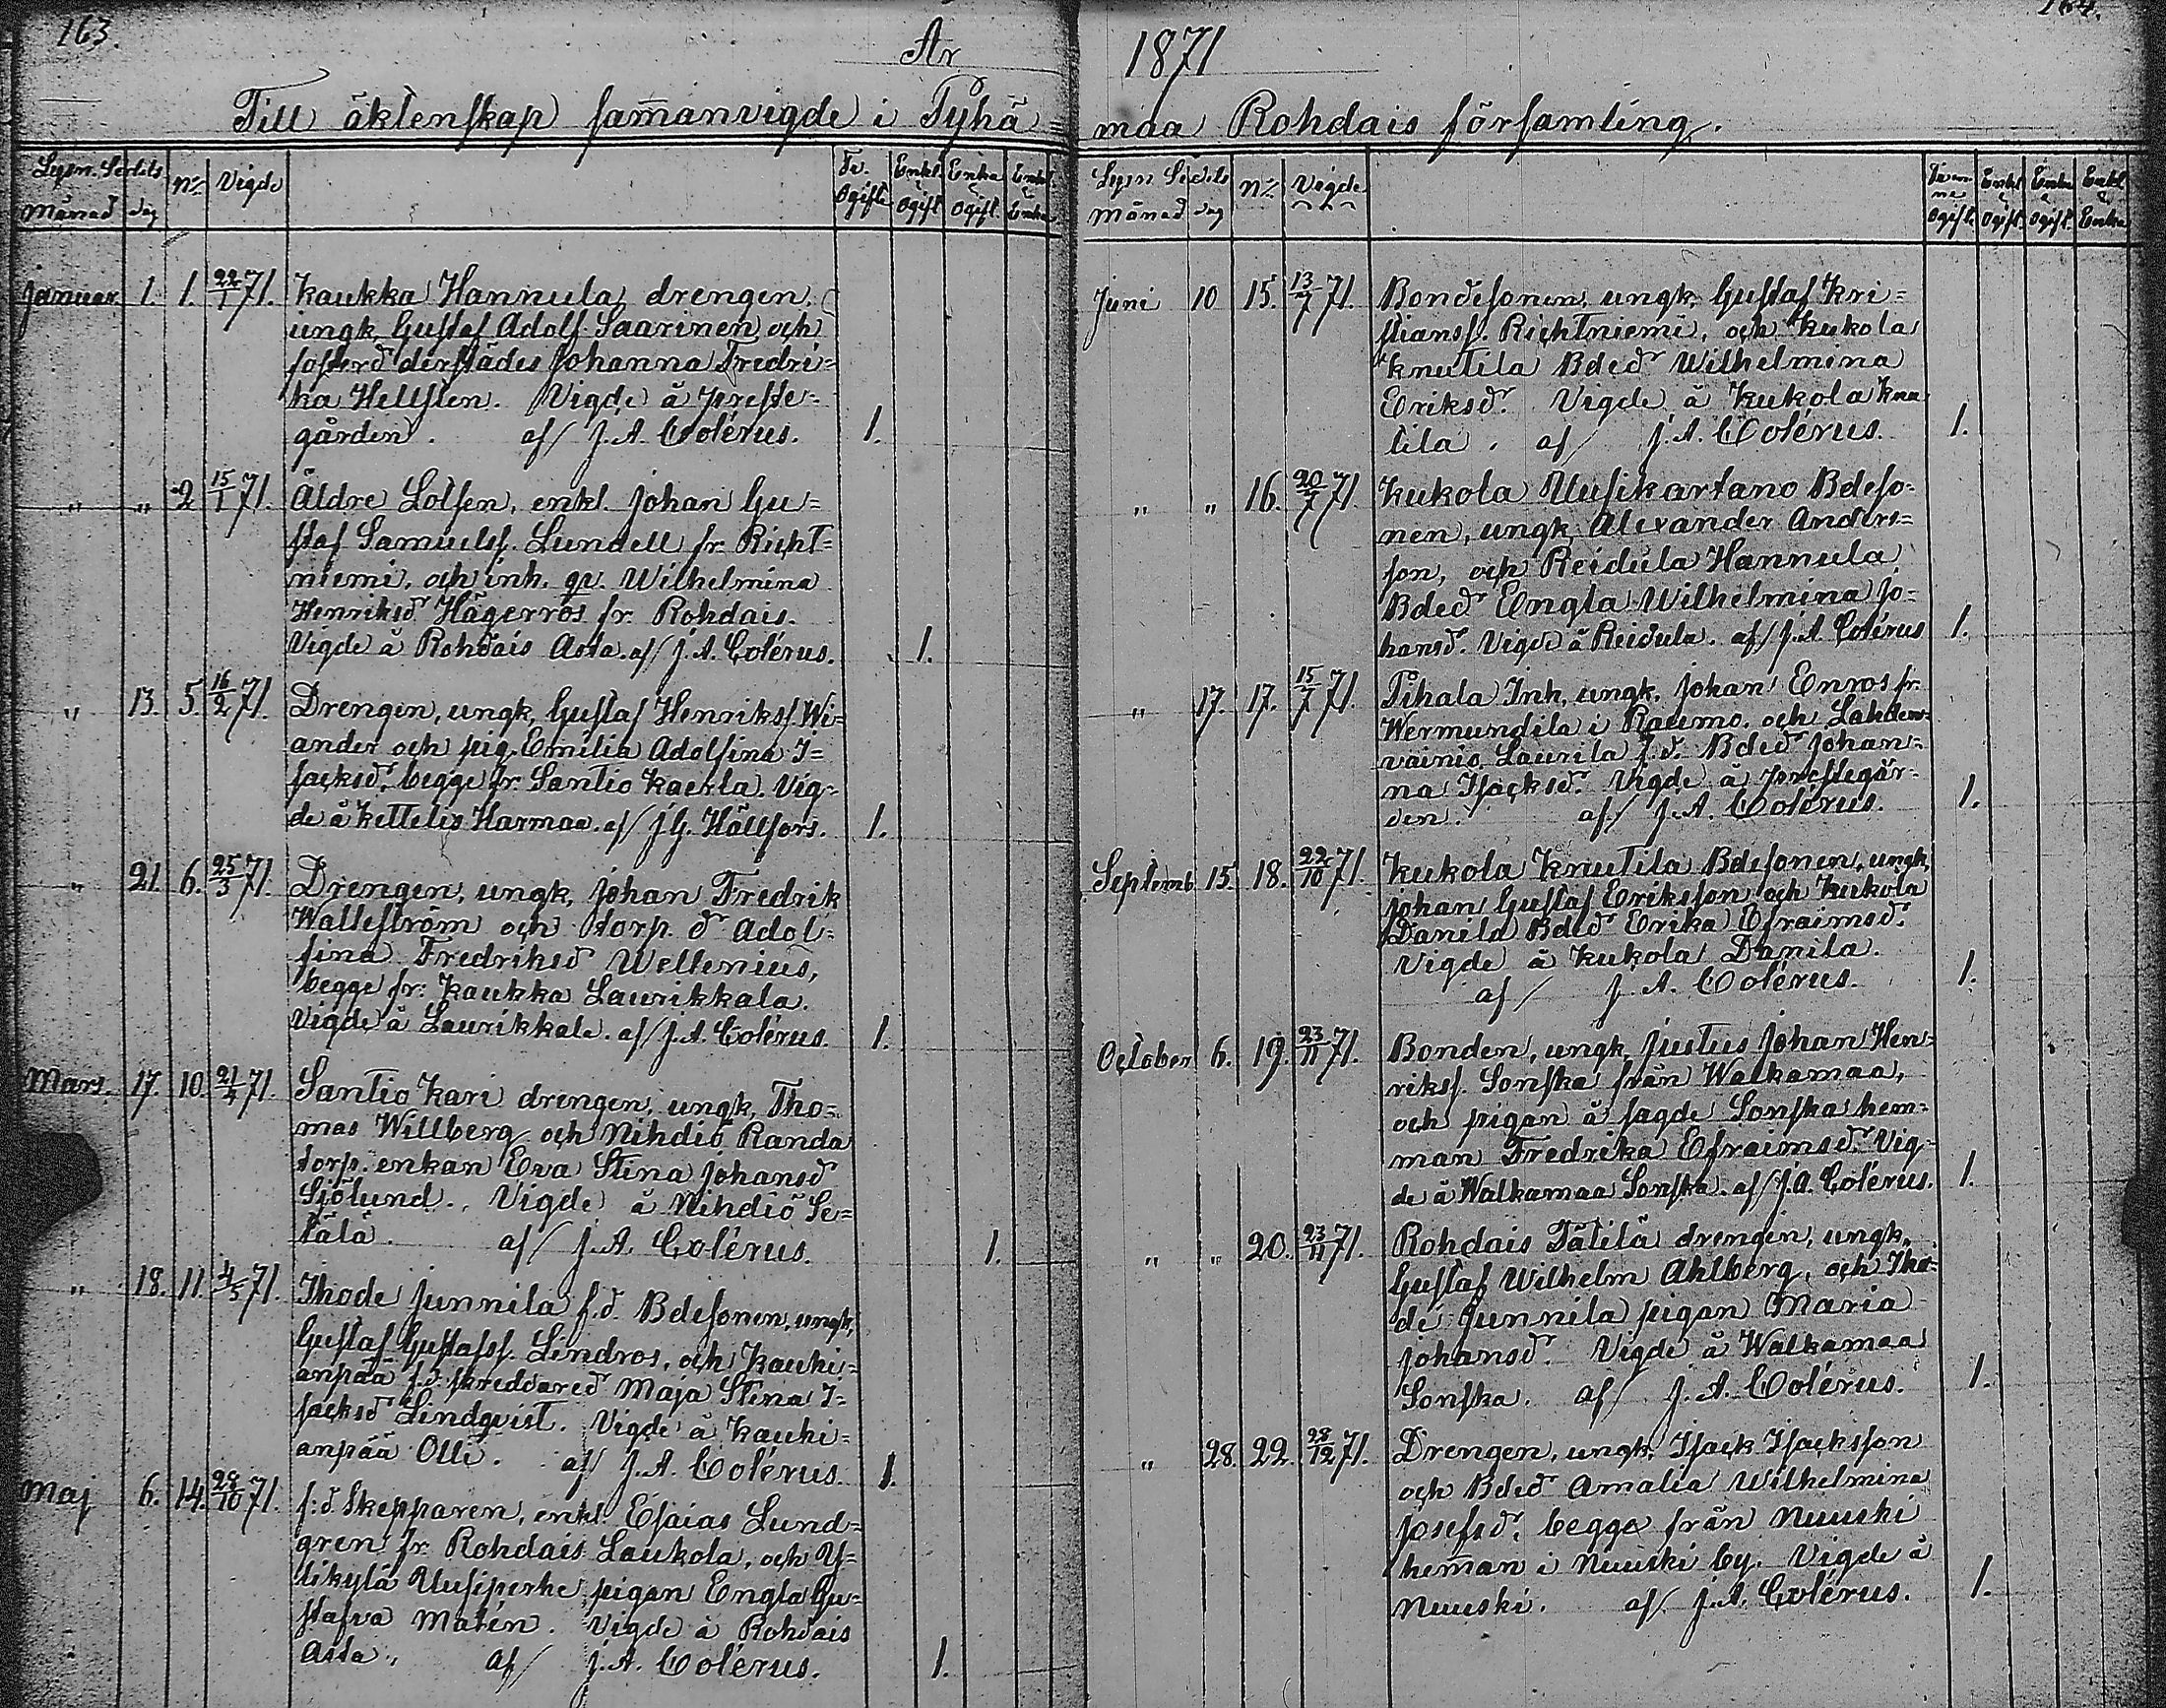 163.
År
Till äktenskap sam̄anvigde i Pyhä=
Lysn. Sedels
Månad dag
No
Vigde
Tv. Ogifte
Enkl. o Ogift
Enka o Ogift.
Enkl. o Enka
Januar. 1. 1. 22/1 71. Kaukka Hannula drengen,
ungk. Gustaf Adolf Saarinen och
fosterd derstädes Johanna Fredri=
ka Hellsten. Vigde å preste=
gården. af/ J. A. Colérus. 1.
" " 2 15/1 71. Äldre Lotsen, enkl. Johan Gu=
staf Samuelss. Lundell fr. Richt=
niemi, och inh. qv. Wilhelmina
Henriksd Hägerros fr. Rohdais.
Vigde å Rohdais Asta. af/ J. A. Colérus. 1.
" 13. 5. 16/2 71. Drengen, ungk, Gustaf Henrikss. Wi=
ander och pig. Emilia Adolfina I=
sacksd. begge fr. Santio Kaerla. Vig=
de å Kettelis Harmaa. af/ J. G. Hällfors. 1.
" 21. 6. 25/3 71. Drengen, ungk, Johan Fredrik
Walleström och torp. d Adol=
fina Fredriksd Wellenius,
begge fr: Kaukka Laurikkala.
Vigde å Laurikkala. af/ J. A. Colérus. 1.
Mars. 17. 10. 21/4 71. Santio Kari drengen, ungk, Tho=
mas Willberg och Nihdiö Randa
torp. enkan Eva Stina Johansd
Sjölund. Vigde å Nihdiö Se=
tälä. af/ J. A. Colérus. 1.
" 18. 11. 4/5 71. Ihode Junnila f.d. Bdesonen, ungk,
Gustaf Gustafss. Lindros, och Kauhi=
anpää f.d. skreddared Maja Stina I=
sacksd Lindqvist. Vigde å Kauhi=
anpää Olli. af/ J. A. Colérus. 1.
Maj 6. 14. 28/10 71. f:d Skepparen, enkl. Esaias Lund=
gren fr. Rohdais Laukola, och Y=
likylä Uusiperhe pigan Engla Gu=
stafva Malén. Vigde å Rohdais
Asta. af/ J. A. Colérus. 1.
164.
1871
maa Rohdais församling.
Lysn Sedels
Månad dag
No
Vigde
Tvenne Ogift.
Enkl o Ogift.
Enka o Ogift.
Enkl o Enka
Juni 10 15. 13/7 71. Bondesonen, ungk. Gustaf Kri=
stianss. Richtniemi, och Kukola
Knutila Bded Wilhelmina
Eriksd. Vigde å Kukola Knu
tila. af/ J. A. Colérus. 1.
" " 16. 20/7 71. Kukola Uusikartano Bdeso=
nen, ungk, Alexander Anders=
son, och Reidula Hannula,
Bded Engla Wilhelmina Jo=
hansd. Vigde å Reidula. af/ J. A. Colérus 1.
" 17. 17. 15/7 71. Pihala Inh, ungk, Johan Enros fr.
Wermundila i Raumo, och Lahden=
vainio Laurila f.d. Bded Johan=
na Isacksd. Vigde å prestegår=
den. af/ J. A. Colérus. 1.
Septemb. 15. 18. 22/10 71. Kukola Knutila Bdesonen, ungk,
Johan Gustaf Eriksson och Kukola
Danila Bded Erika Efraimsd.
Vigde å Kukola Danila.
af/ J. A. Colérus. 1.
October 6. 19. 23/11 71. Bonden, ungk, Justus Johan Hen=
rikss. Sonska från Walkamaa,
och pigan å sagde Sonska hem=
man Fredrika Efraimsd. Vig=
de å Walkamaa Sonska. af/ J. A. Colérus. 1.
" " 20. 23/11 71. Rohdais Tätilä drengen, ungk,
Gustaf Wilhelm Ahlberg, och Iho=
de Junnila pigan Maria
Johansd. Vigde å Walkamaa
Sonska. af/ J. A. Colérus. 1.
" 28. 22. 28/12 71. Drengen, ungk, Isack Isacksson
och Bded Amalia Wilhelmina
Josefsd. begge från Nuuski
hem̄an i Nuuski by. Vigde å
Nuuski. af/ J. A. Colérus. 1.